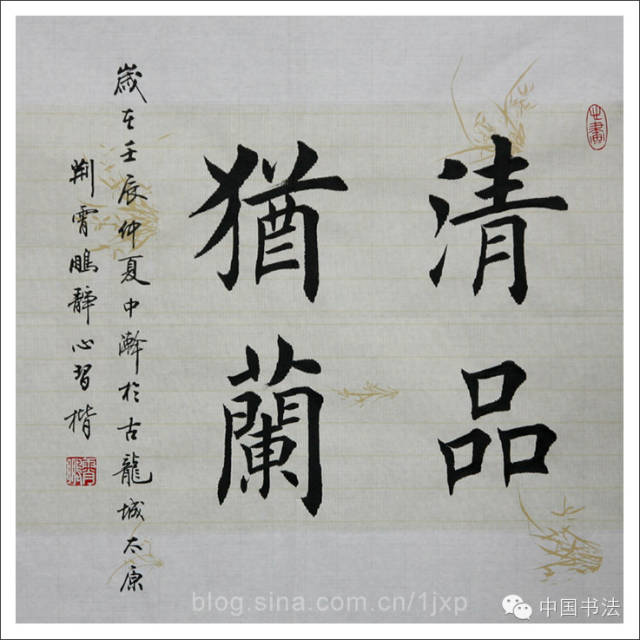 清品
猶蘭
歲在壬辰仲夏中澣於古龍城太原
荆霄鵬靜心習楷
blog.sina.com.cn/1jxp
中国书法